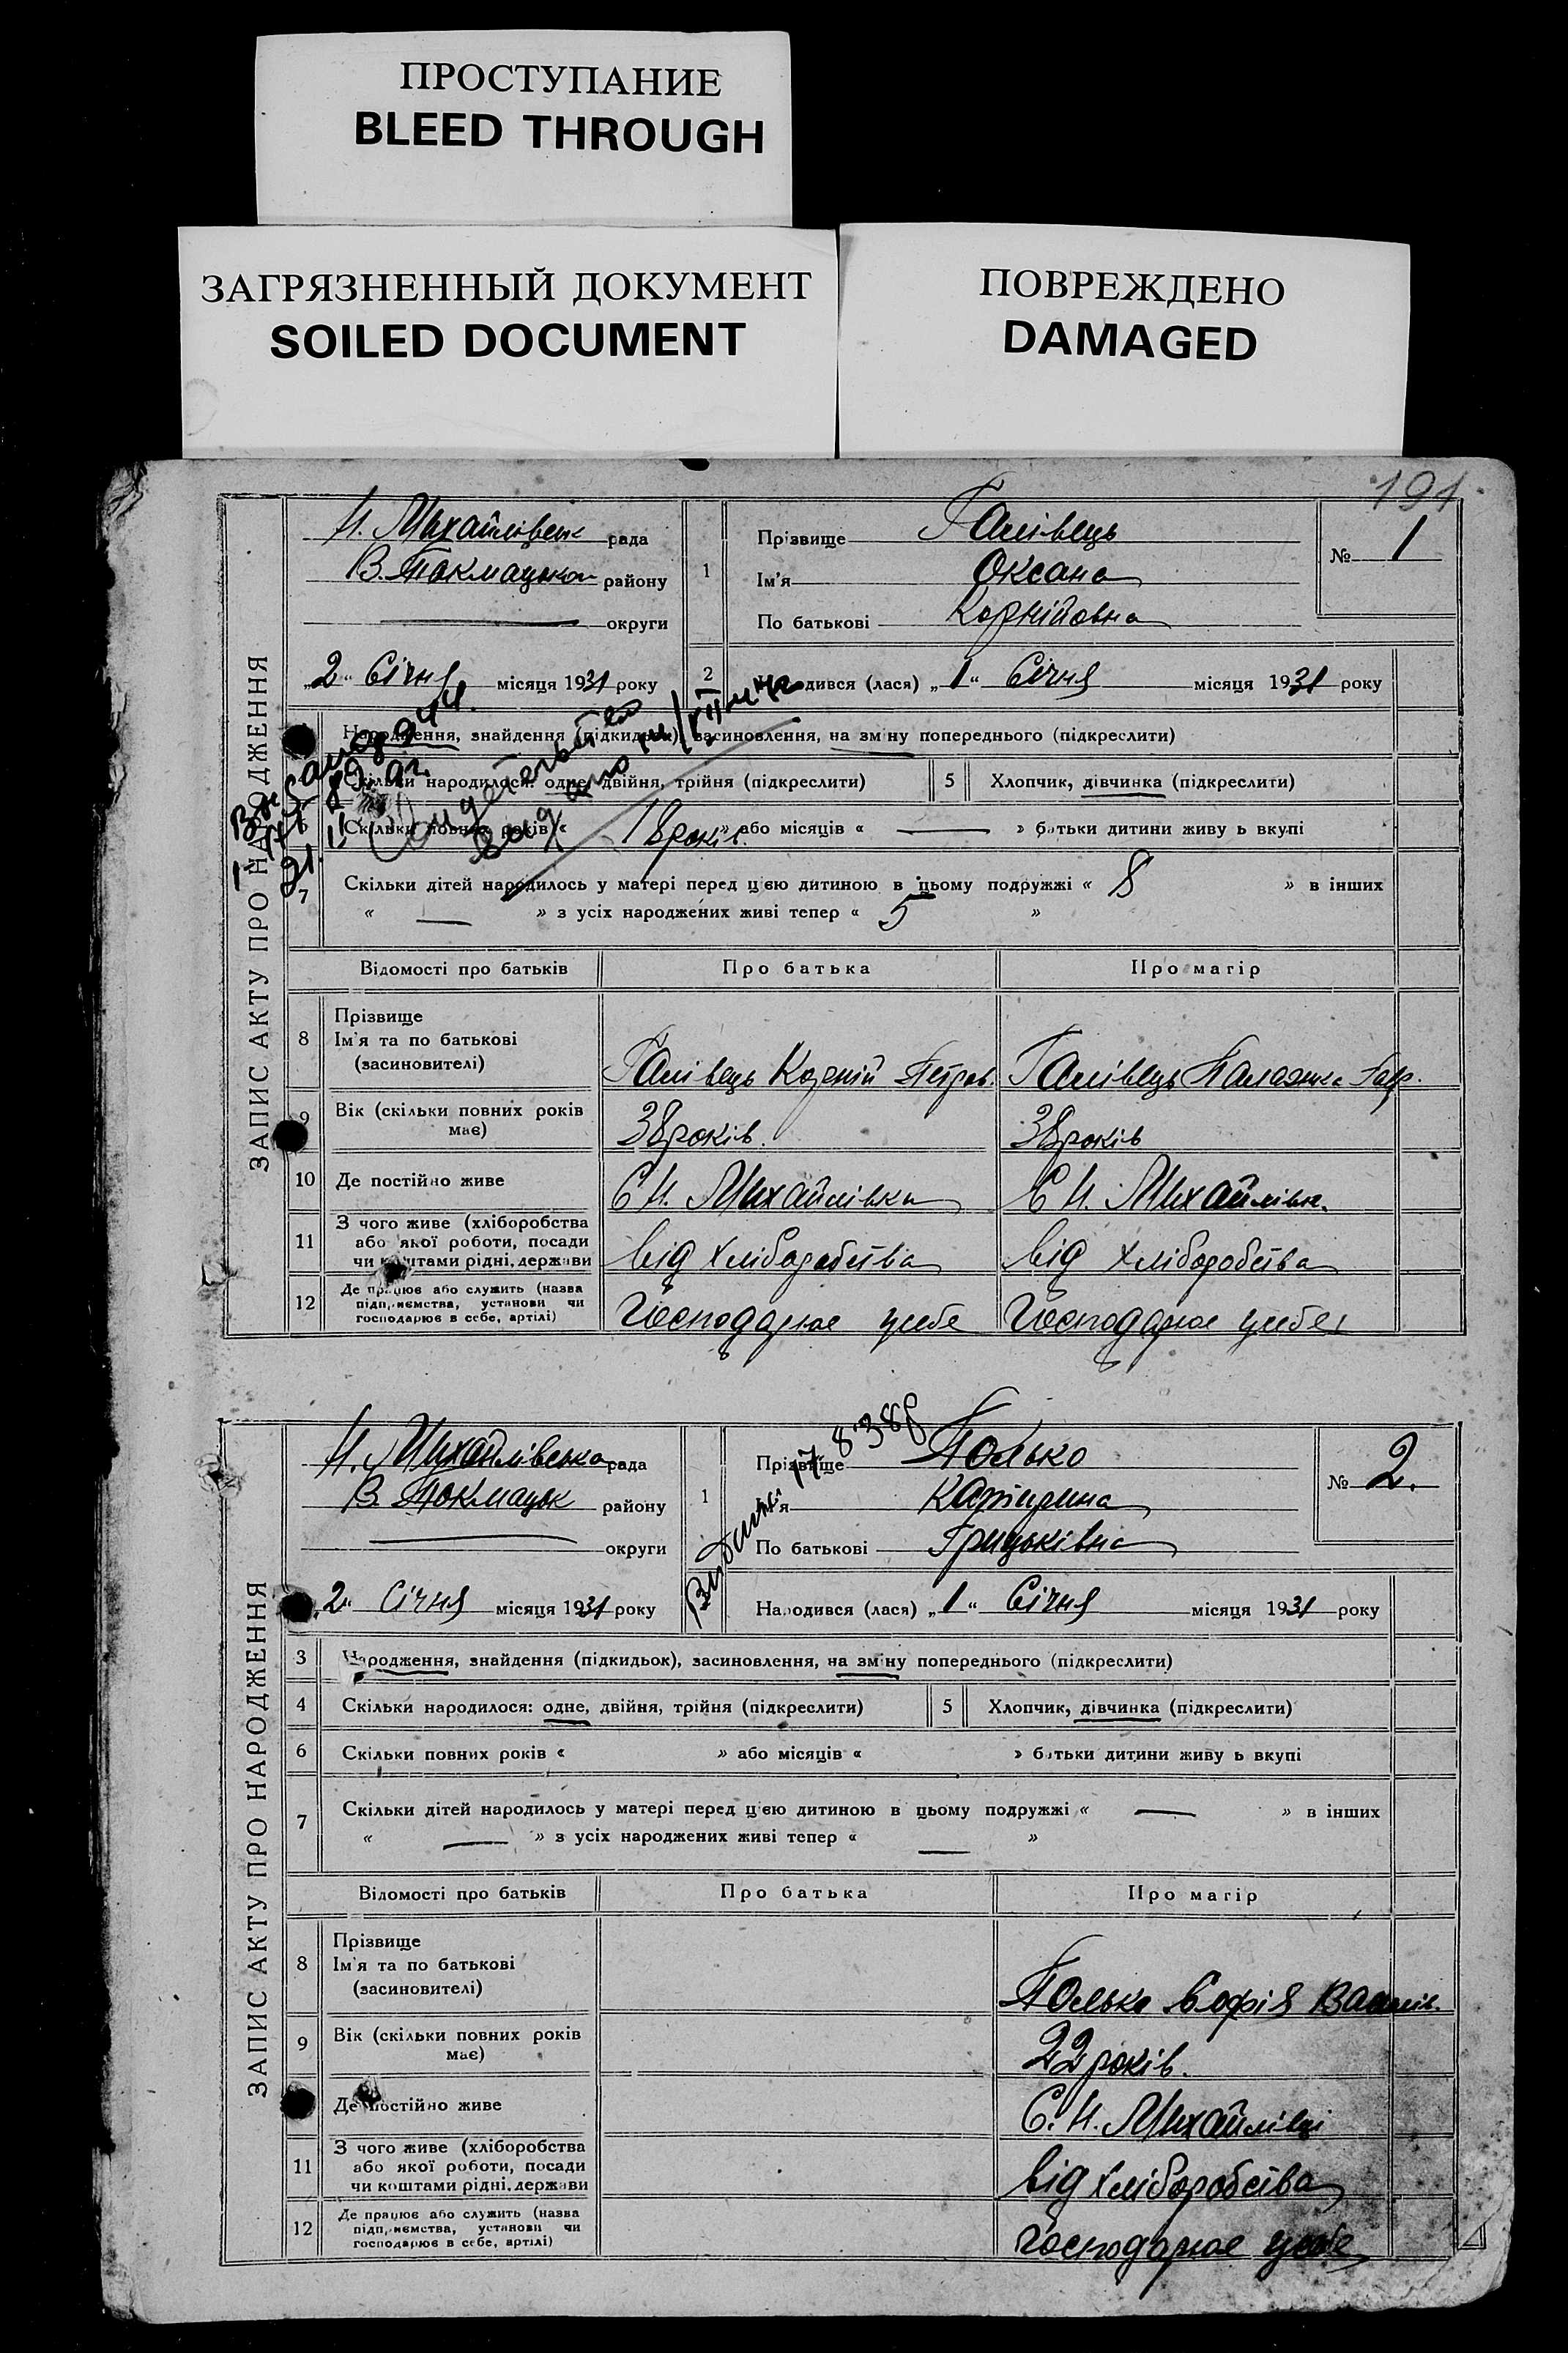 ПРОСТУПАНИЕ
BLEED THROUGH
ЗАГРЯЗНЕННЫЙ ДОКУМЕНТ
SOILED DOCUMENT
ПОВРЕЖДЕНО
DAMAGED
191
ЗАПИС АКТУ ПРО НАРОДЖЕННЯ
Н. Михайлівськ рада
В. Токмацьког району
округи
„2“ Січня місяця 1931 року
1
Прізвище Галівець
Ім'я Оксана
По батькові Корнійовна
№ 1
2
дився (лася) „1“ Січня місяця 1931 року
Народження, знайдення (підкидьок), засиновлення, на зміну попереднього (підкреслити)
Скільки народилося: одне, двійня, трійня (підкреслити)
5 Хлопчик, дівчинка (підкреслити)
6 Скільки повних років « 18 років. » або місяців « — » батьки дитини живуть вкупі
7 Скільки дітей народилось у матері перед цією дитиною в цьому подружжі « 8 » в інших
« — » з усіх народжених живі тепер « 5 »
Відомості про батьків Про батька Про матір
8 Прізвище
Ім'я та по батькові
(засиновителі)
Галівець Корній Петров. Галівець Палажка
9 Вік (скільки повних років має)
38 років. 38 років
10 Де постійно живе
С Н. Михайлівка С Н. Михайлівк.
11 З чого живе (хліборобства
або якої роботи, посади
чи коштами рідні, держави
від хліборобства від хліборобства
12 Де працює або служить (назва
підприємства, установи чи
господарює в себе, артілі)
Господарює усебе Господарює усебе
ЗАПИС АКТУ ПРО НАРОДЖЕННЯ
Н. Михайлівська рада
В. Токмацьк району
округи
„2“ Січня місяця 1931 року
Видано 17 8 38р
1
Прізвище Полько
Ім'я Катирина
По батькові Грицьківна
№ 2.
Народився (лася) „1“ Січня місяця 1931 року
3 Народження, знайдення (підкидьок), засиновлення, на зміну попереднього (підкреслити)
4 Скільки народилося: одне, двійня, трійня (підкреслити)
5 Хлопчик, дівчинка (підкреслити)
6 Скільки повних років « » або місяців « » батьки дитини живуть вкупі
7 Скільки дітей народилось у матері перед цією дитиною в цьому подружжі « — » в інших
« — » з усіх народжених живі тепер « — »
Відомості про батьків Про батька Про матір
8 Прізвище
Ім'я та по батькові
(засиновителі)
Полько Софія Василів.
9 Вік (скільки повних років має)
22 років.
Де постійно живе
С. Н. Михайлівці
11 З чого живе (хліборобства
або якої роботи, посади
чи коштами рідні, держави
від хліборобства
12 Де працює або служить (назва
підприємства, установи чи
господарює в себе, артілі)
Господарює усебе